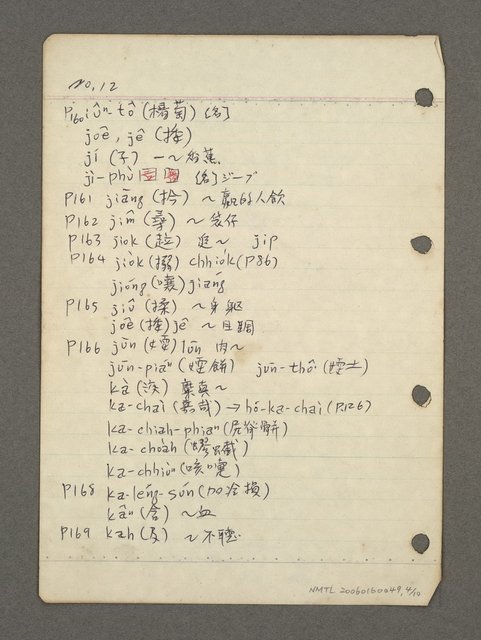 No, 12
P160 iûⁿ-tô (楊萄) 〔名〕
joê, jê (挼)
jí (子) 一~弓蕉
ji-phù 〔名〕ジープ
P161 jiāng (拎) ~予別人飲
P162 jîm (尋) ~袋仔
P163 jiok (趁) 追~ jip
P164 jio̍k (搦) chhiok (P86)
jióng (嚷) jiáng
P165 jiû (揉) ~身軀
joê (挼) jê ~目睭
P166 jūn (煙) lūn 肉~
jūn-piáⁿ (煙餅) jūn-thô͘ (煙土)
kà (浹) 棄真~
ka-chài (嘉哉) → hó-ka-chài (P.126)
ka-chiah-phiaⁿ (尻脊骿)
ka-choa̍h (蟉蠘)
ka-chhiùⁿ (咳嚏)
P168 ka-léng-sún (加冷損)
kâⁿ (含) ~血
P169 kah (及) ~不聽
NMTL 20060160049, 4/10